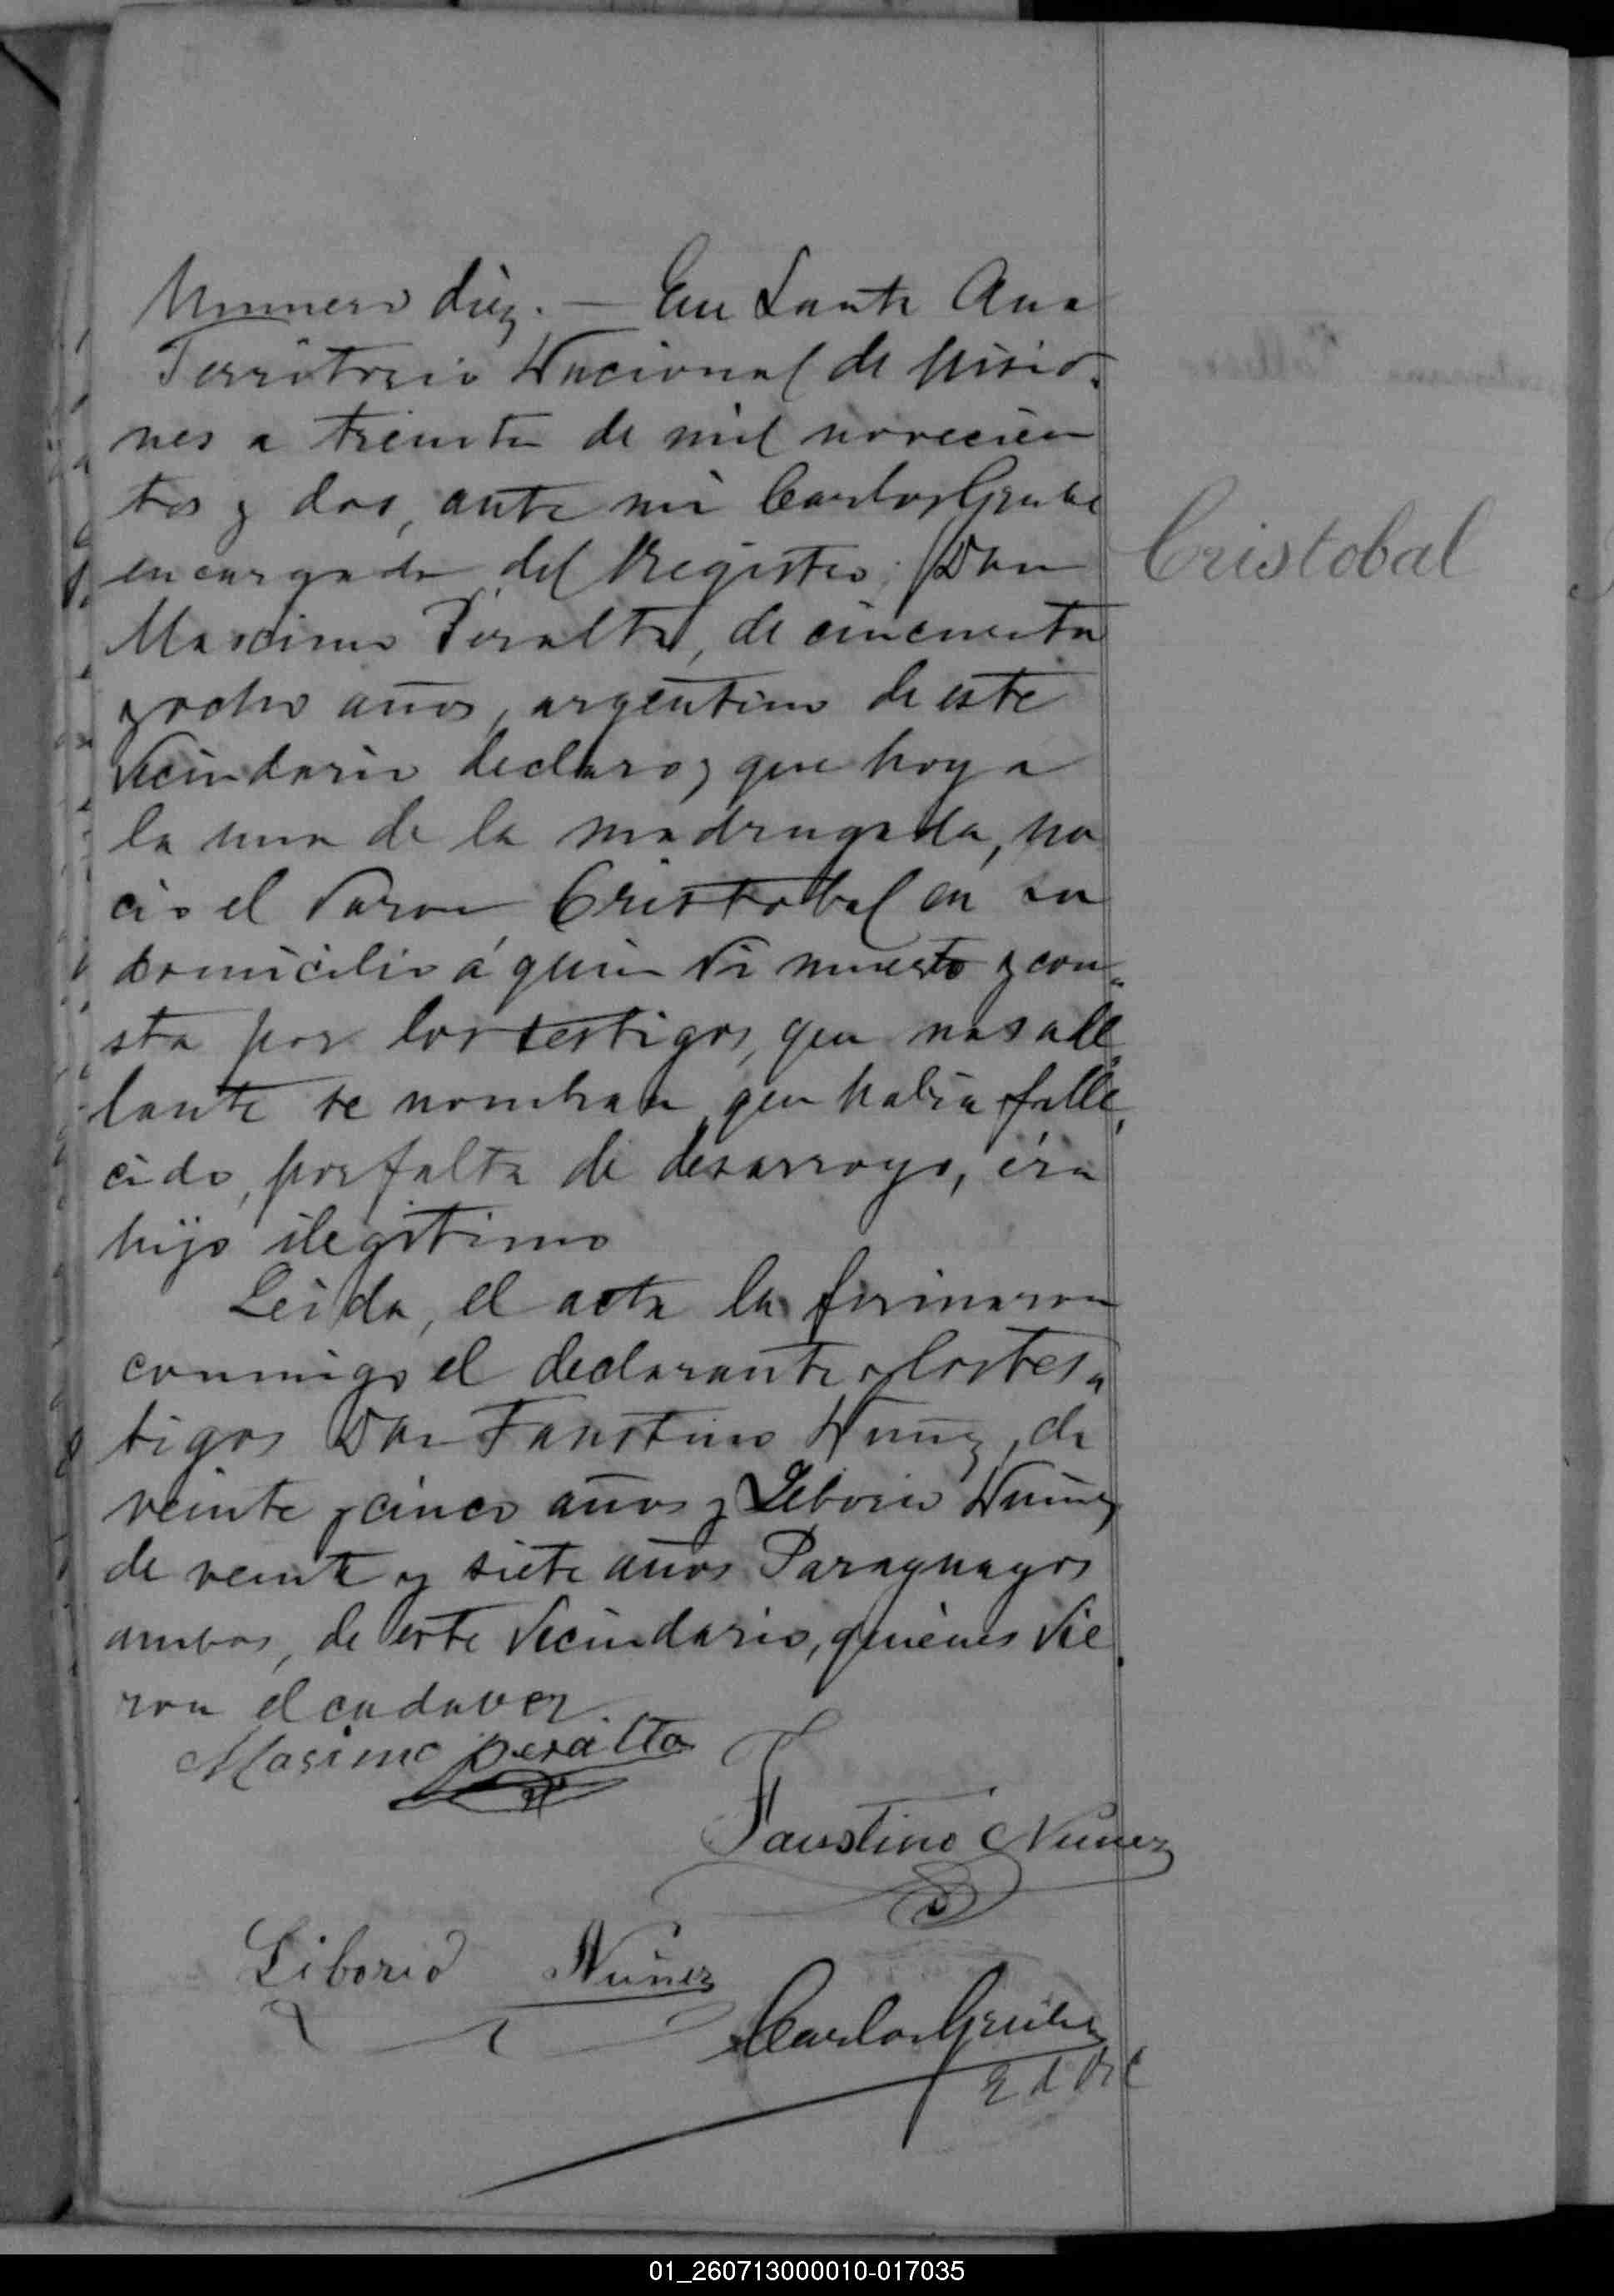 Numero diez. — En Santa Ana
Territorio Nacional de Misio-
nes a treinta de mil novecien
tos y dos, ante mi Carlos
encargado del Registro, Don
Maximo Peralta, de cincuenta
y ocho años, argentino de este
Vecindario declaro, que hoy a
la una de la madrugada, na
cio el Varon Cristobal en su
domicilio á quien vi muerto y con-
sta por los testigos, que mas ade
lante se nombran que habia falle
cido, por falta de desarroyo, éra
hijo ilegitimo
Leida, el acta la firmaron
conmigo el declarante y los tes-
tigos Don Faustino Nuñez, de
veinte y cinco años y Liborio Nuñez
de veinte y siete años Paraguayos
ambos, de este Vecindario, quienes vie
ron el cadaver.
Cristobal
Masimo peralta
Faustino Nuñez
Liborio Nuñez
Carlos
E d R C
01_260713000010-017035